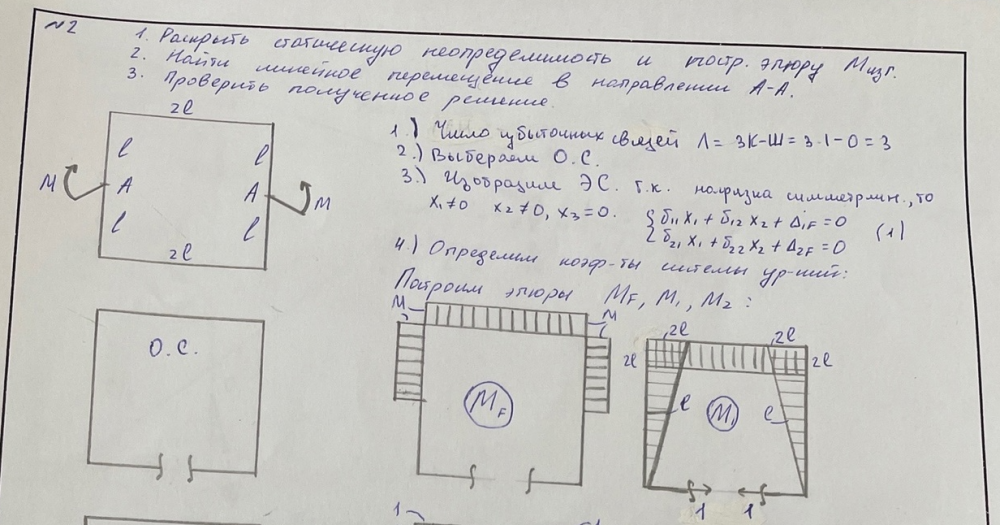 №2
1. Раскрыть статическую неопределимость и постр. эпюру Мизг.
2. Найти линейное перемещение в направлении А-А.
3. Проверить полученное решение.
2l
l l
M A A M
l l
2l
1.) Число избыточных связей Л = 3К-Ш = 3·1-0 = 3
2.) Выбераем О.С.
3.) Изобразим ЭС. т.к. нагрузка симметричн., то
X₁≠0 X₂≠0, X₃=0. { δ₁₁X₁ + δ₁₂X₂ + Δ₁F = 0
{ δ₂₁X₁ + δ₂₂X₂ + Δ₂F = 0 (1)
4.) Определим коэф-ты системы ур-ний:
Построим эпюры MF, M₁, M₂:
О.С.
M M
MF
2l 2l
2l 2l
l M₁ l
1 1
1